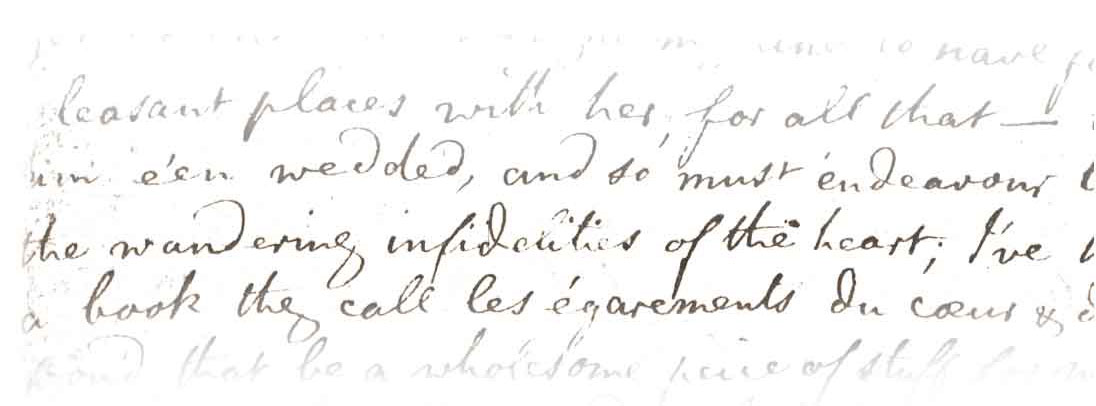 to have
pleasant places with her, for all that —
e'en wedded, and so must endeavour
the wandering infidelities of the heart; I've
a book they call les égarements du cœur &
that be a wholesome piece of stuff for